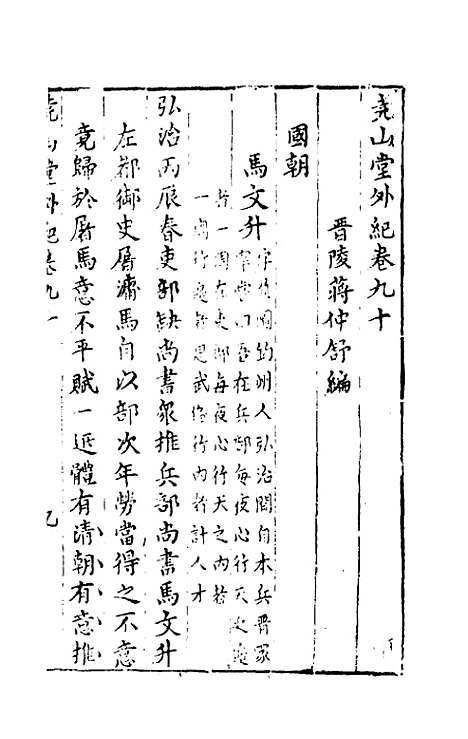 堯山堂外紀卷九十
晋陵蔣仲舒編
國朝
馬文升
字負圖鈞州人弘治間自本兵晋冢
宰嘗曰吾在兵部每夜心行天之邊
者一周在吏部每夜心行天之内者
一周行邊者思武俻行内者計人才
弘治丙辰春吏部缺尚書衆推兵部尚書馬文升
左都御史屠滽馬自以部次年勞當得之不意
竟歸於屠馬意不平賦一近體有清朝有意推
堯山堂外紀卷九十